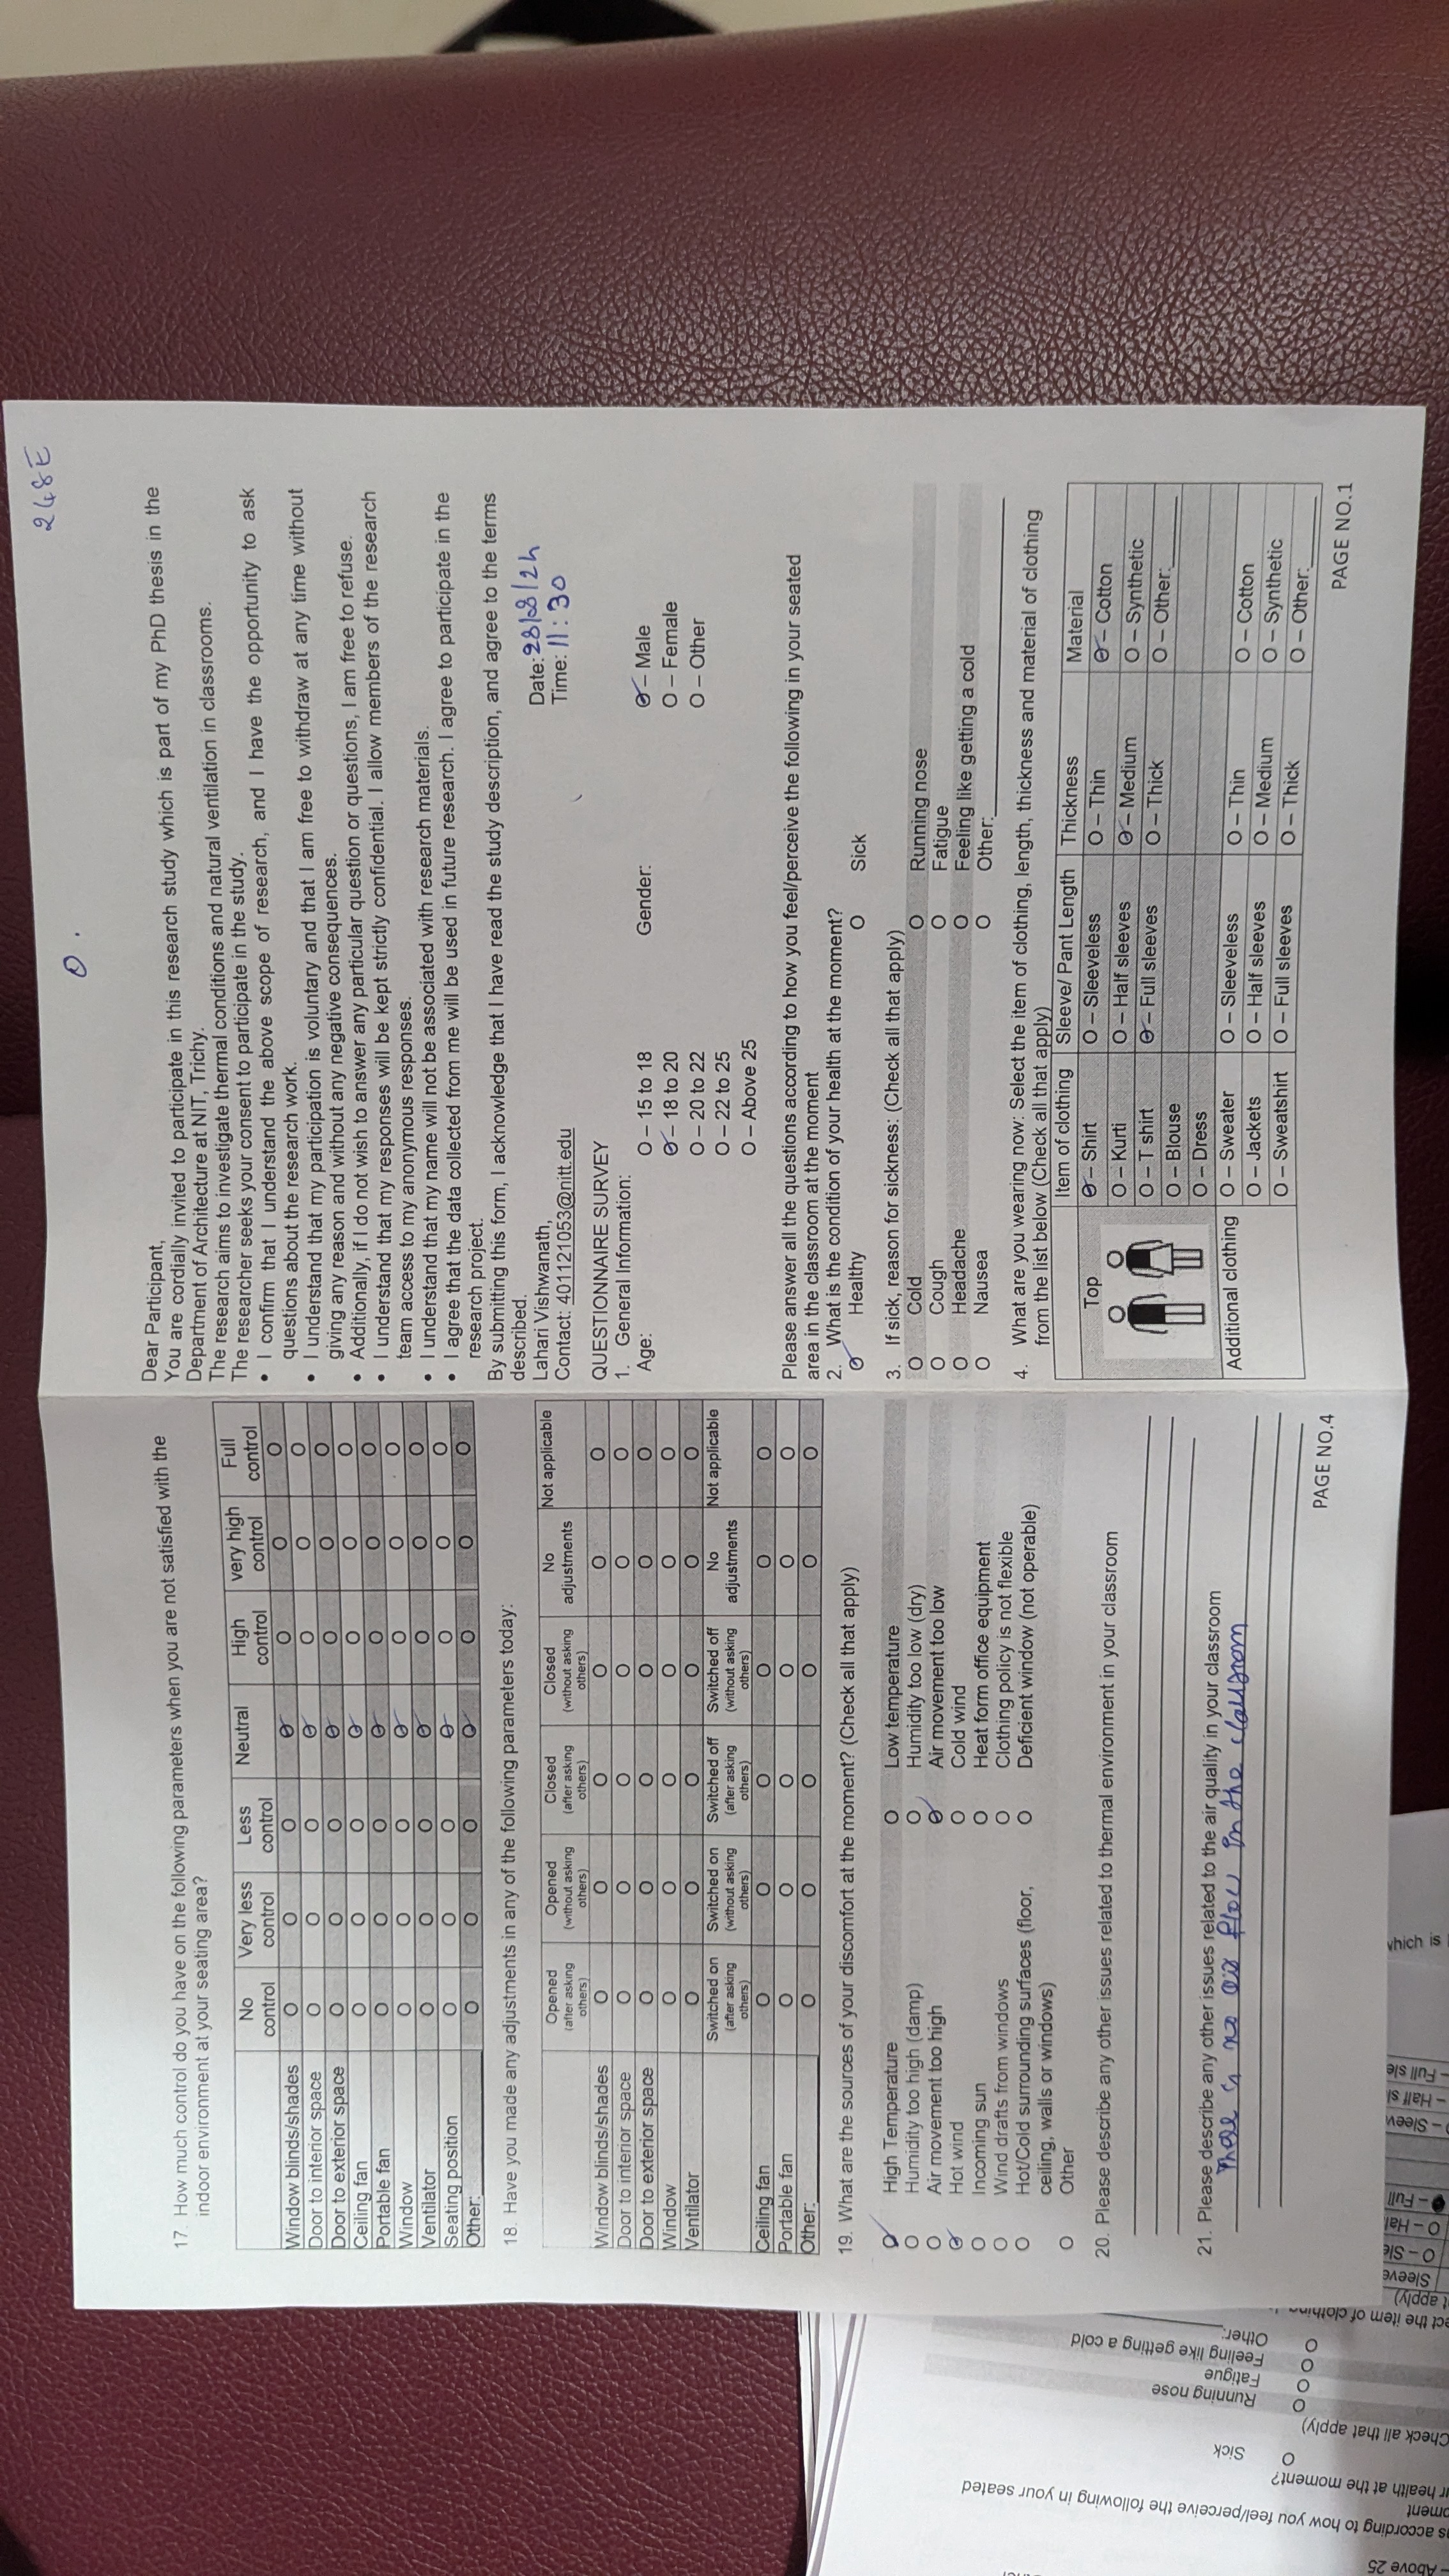 17. How much control do you have on the following parameters when you are not satisfied with the
indoor environment at your seating area?
No control Very less control Less control Neutral High control very high control Full control
Window blinds/shades O O O O O O O
Door to interior space O O O O O O O
Door to exterior space O O O O O O O
Ceiling fan O O O O O O O
Portable fan O O O O O O O
Window O O O O O O O
Ventilator O O O O O O O
Seating position O O O O O O O
Other: O O O O O O O
18. Have you made any adjustments in any of the following parameters today:
Opened (after asking others) Opened (without asking others) Closed (after asking others) Closed (without asking others) No adjustments Not applicable
Window blinds/shades O O O O O O
Door to interior space O O O O O O
Door to exterior space O O O O O O
Window O O O O O O
Ventilator O O O O O O
Switched on (after asking others) Switched on (without asking others) Switched off (after asking others) Switched off (without asking others) No adjustments Not applicable
Ceiling fan O O O O O O
Portable fan O O O O O O
Other: O O O O O O
19. What are the sources of your discomfort at the moment? (Check all that apply)
O High Temperature O Low temperature
O Humidity too high (damp) O Humidity too low (dry)
O Air movement too high O Air movement too low
O Hot wind O Cold wind
O Incoming sun O Heat form office equipment
O Wind drafts from windows O Clothing policy is not flexible
O Hot/Cold surrounding surfaces (floor, O Deficient window (not operable)
ceiling, walls or windows)
O Other
20. Please describe any other issues related to thermal environment in your classroom
21. Please describe any other issues related to the air quality in your classroom
There is no air flow in the classroom
PAGE NO.4
248E
0 .
Dear Participant,
You are cordially invited to participate in this research study which is part of my PhD thesis in the
Department of Architecture at NIT, Trichy.
The research aims to investigate thermal conditions and natural ventilation in classrooms.
The researcher seeks your consent to participate in the study.
• I confirm that I understand the above scope of research, and I have the opportunity to ask
questions about the research work.
• I understand that my participation is voluntary and that I am free to withdraw at any time without
giving any reason and without any negative consequences.
• Additionally, if I do not wish to answer any particular question or questions, I am free to refuse.
• I understand that my responses will be kept strictly confidential. I allow members of the research
team access to my anonymous responses.
• I understand that my name will not be associated with research materials.
• I agree that the data collected from me will be used in future research. I agree to participate in the
research project.
By submitting this form, I acknowledge that I have read the study description, and agree to the terms
described.
Date: 28/08/24
Lahari Vishwanath,
Time: 11:30
Contact: 401121053@nitt.edu
QUESTIONNAIRE SURVEY
1. General Information:
Age: O – 15 to 18 Gender: O – Male
O – 18 to 20 O – Female
O – 20 to 22 O – Other
O – 22 to 25
O – Above 25
Please answer all the questions according to how you feel/perceive the following in your seated
area in the classroom at the moment
2. What is the condition of your health at the moment?
O Healthy O Sick
3. If sick, reason for sickness: (Check all that apply)
O Cold O Running nose
O Cough O Fatigue
O Headache O Feeling like getting a cold
O Nausea O Other:
4. What are you wearing now: Select the item of clothing, length, thickness and material of clothing
from the list below (Check all that apply)
Item of clothing Sleeve/ Pant Length Thickness Material
Top O – Shirt O – Sleeveless O – Thin O – Cotton
O – Kurti O – Half sleeves O – Medium O – Synthetic
O – T shirt O – Full sleeves O – Thick O – Other:
O – Blouse
O – Dress
Additional clothing O – Sweater O – Sleeveless O – Thin O – Cotton
O – Jackets O – Half sleeves O – Medium O – Synthetic
O – Sweatshirt O – Full sleeves O – Thick O – Other:
PAGE NO.1
Above 25
s according to how you feel/perceive the following in your seated
health at the moment?
O Sick
Check all that apply)
O Running nose
O Fatigue
O Feeling like getting a cold
O Other:
ect the item of clothing
t apply)
Sleeve
O – Sle
O – Hal
– Full
– Sleev
– Half s
– Full sle
which is